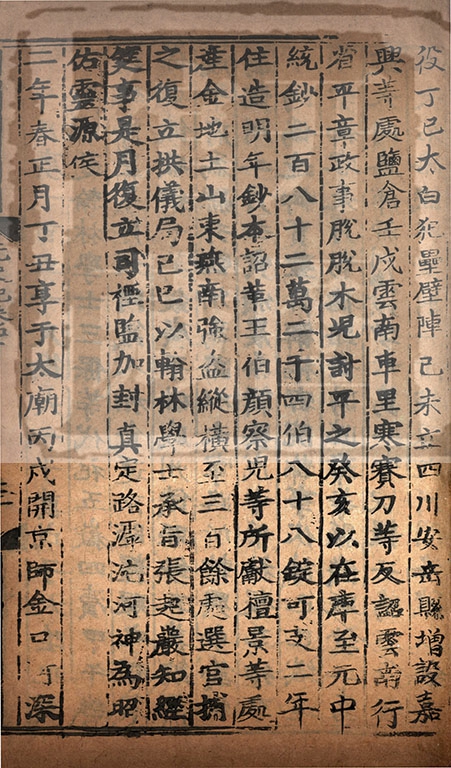 役丁巳太白犯壘壁陣己未立四川安岳縣增設嘉
興等處鹽倉壬戌雲南車里寒賽刀等反詔雲南行
省平章政事脫脫木児討平之癸亥以在庫至元中
統鈔二百八十二萬二千四伯八十八錠可支二年
住造明年鈔本詔革王伯顏察児等所獻檀景等處
產金地土山東燕南強盗縱橫至三百餘處選官捕
之復立拱儀局己巳以翰林學士承旨張起巖知經
筵事是月復立司禋監加封真定路滹沱河神為昭
佑靈源侯
二年春正月丁丑享于太廟丙戌開京師金口河深